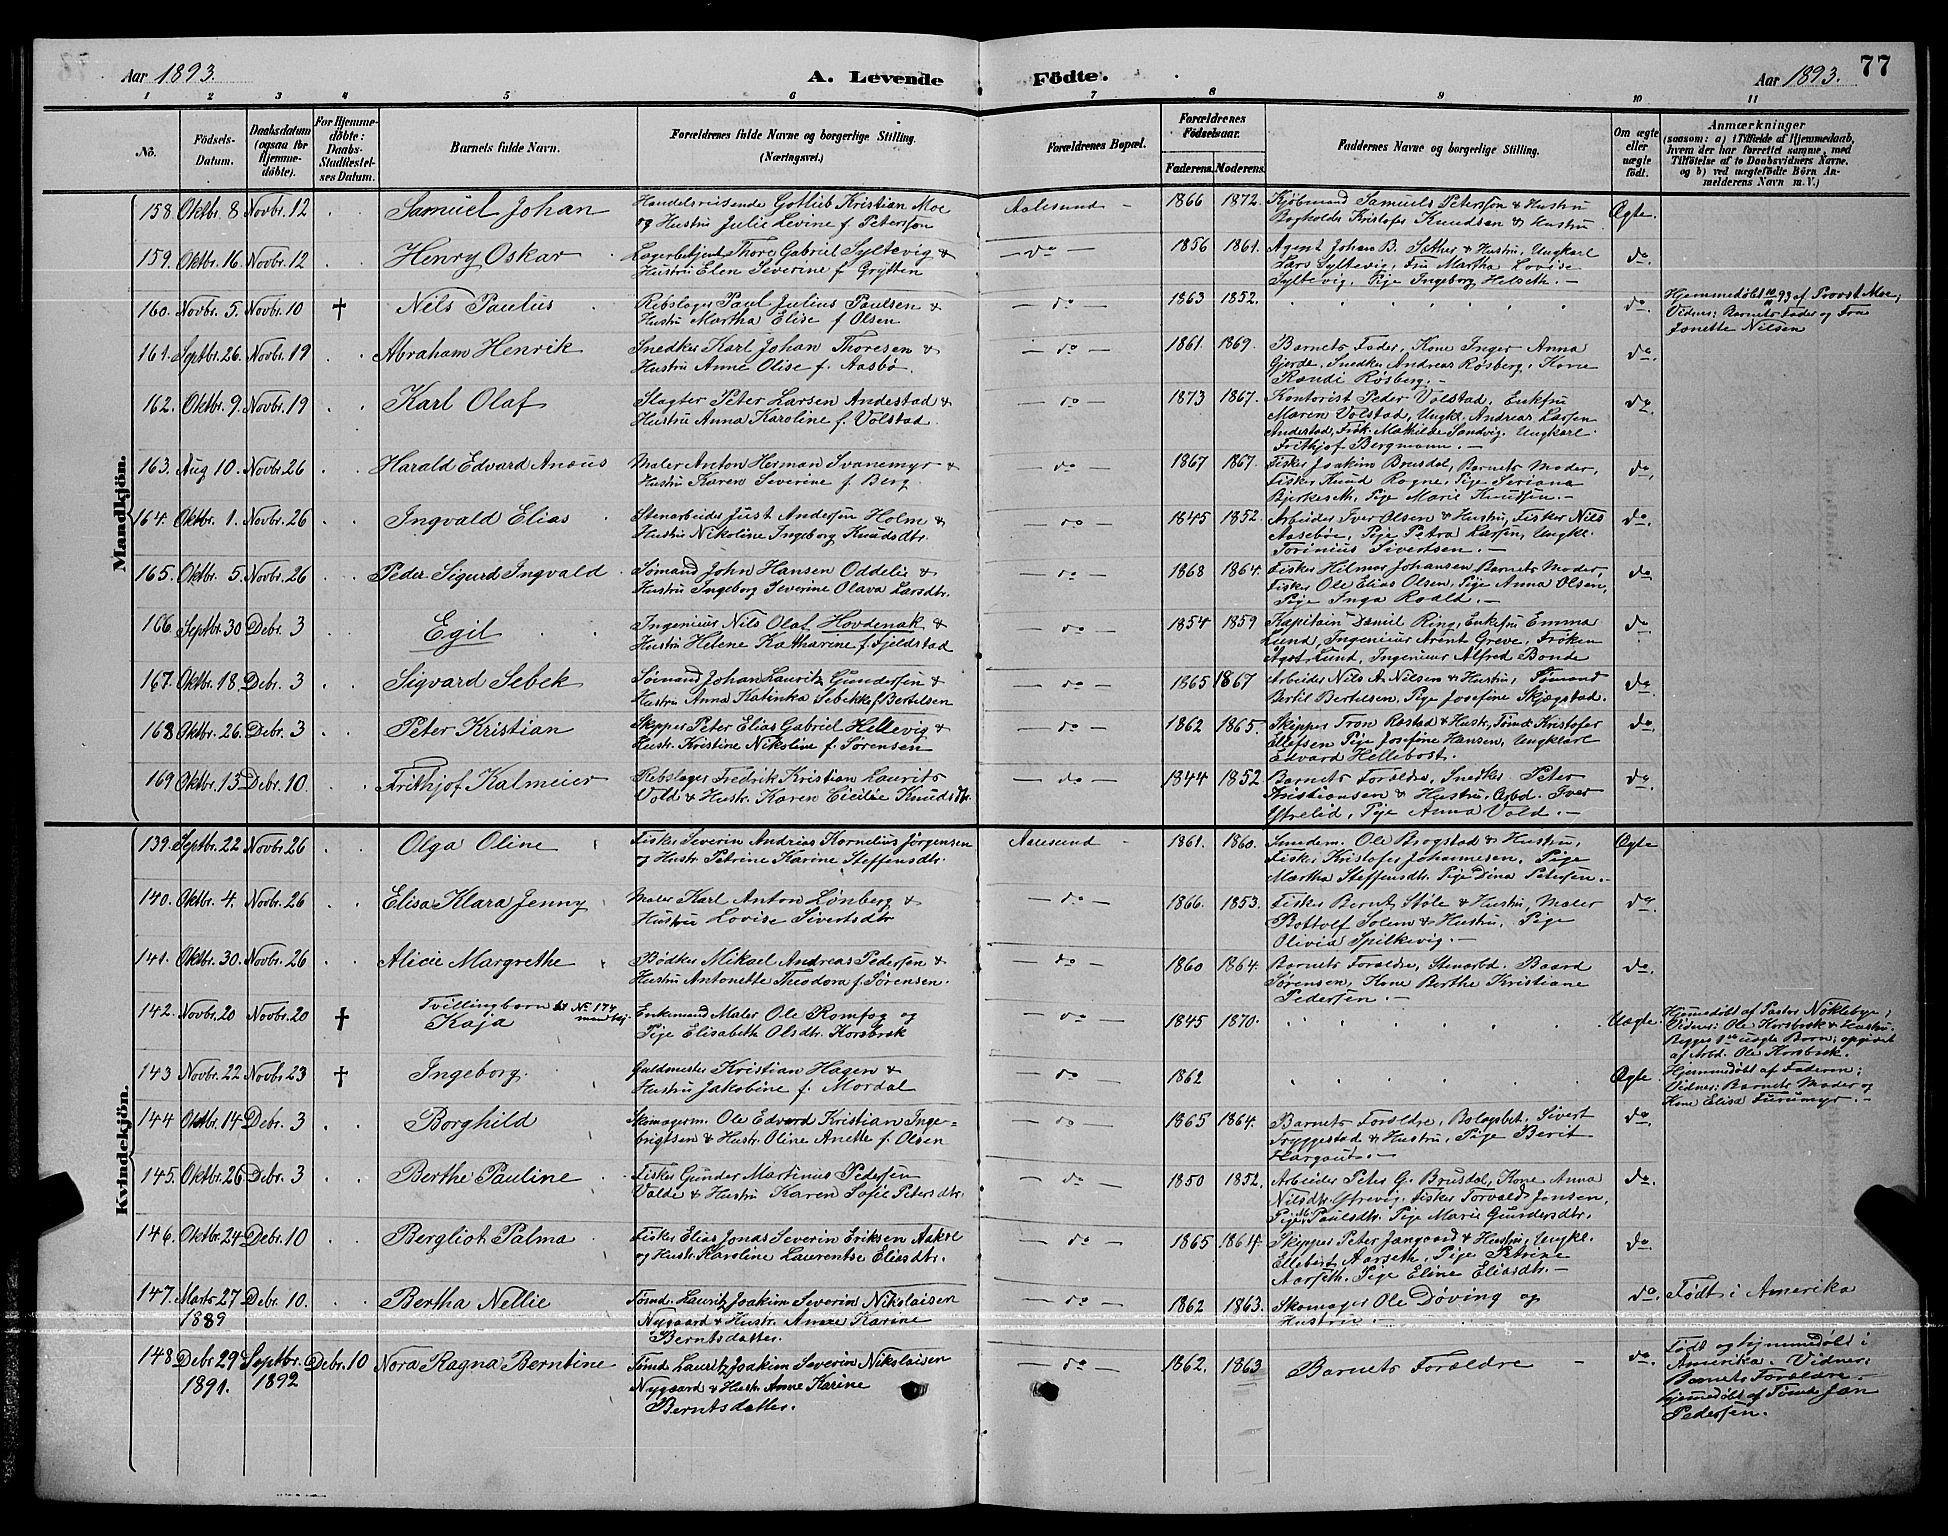 Aar 1893.
A. Levende Födte.
Aar 1893.
77
1 2 3 4 5 6 7 8 9 10 11
No.
Födsels-Datum.
Daabsdatum (ogsaa for Hjemme-döbte).
For Hjemme-döbte: Daabs-Stadfæstel-ses Datum.
Barnets fulde Navn.
Forældrenes fulde Navne og borgerlige Stilling.
(Næringsvei.)
Forældrenes Bopæl.
Forældrenes Födselsaar.
Faderens. Moderens.
Faddernes Navne og borgerlige Stilling.
Om ægte eller uægte födt.
Anmærkninger
(saasom: a) i Tilfælde af Hjemmedaab, hvem der har forrettet samme, med Tilföielse af to Daabsvidners Navne, og b) ved uægtefödte Börn An-melderens Navn m. V.)
Mandkjön.
158. Oktbr. 8 Novbr. 12 Samuel Johan Handelsreisende Gotlieb Kristian Moe Aalesund 1866 1872. Kjøbmand Samuel Petersson & Hustru Ægte.
og Hustru Julie Levine f. Petersson Bogholder Kristofer Knudsen & Hustru
159. Oktbr. 16. Novbr. 12 Henry Oskar Lagerbetjent Thore Gabriel Syltevig & do 1856 1861. Agent Johan B. Sæther & Hustru, Ungkarl do
Hustru Elen Severine f. Grytten Lars Syltevig, Fru Martha Lovise
Syltevig, Pige Ingeborg Helseth.
160. Novbr. 5. Novbr. 10 † Nils Paulus Rebslager Paul Julius Paulsen & do 1863 1852. do Hjemmedøbt 10/11 93 af Provst Moe;
Hustru Martha Elise f Olsen Vidner: Barnets Fader og Fru
Janette Nilsen
161. Septbr. 26. Novbr. 19 Abraham Henrik Snedker Karl Johan Thoresen & do 1861. 1869. Barnets Fader, Kone Inger Anna do
Hustru Anne Olise f. Aasbø. Gjerde, Snedker Andreas Røsberg, Kone
Randi Røsberg.
162. Oktbr. 9. Novbr. 19 Karl Olaf Slagter Peter Larsen Andestad & do 1873 1867. Kontorist Peder Volstad, Enkefru do
Hustru Anna Karoline f. Volstad. Maren Volstad, Ungk. Andreas Larsen
Andestad, Frøk. Mathilde Sandvig, Ungkarl
Frithjof Bergmann.
163. Aug 10. Novbr. 26 Harald Edvard Ansus Maler Anton Herman Svanemyr & do 1867 1867. Fisker Joakim Brusdal, Barnets Moder, do
Hustru Karen Severine f. Berg Fisker Knud Rogne, Pige Seriana
Bjerkeseth, Pige Marie Knudsen.
164. Oktbr. 1. Novbr. 26 Ingvald Elias Stenarbeider Just Andersen Holm & do 1845 1852. Arbeider Iver Olsen & Hustru, Fisker Nils do
Hustru Nikoline Ingeborg Knudsdtr. Aasebøe, Pige Petra Larsen, Ungkl.
Torinius Sivertsen.
165. Oktbr. 5. Novbr. 26 Peder Sigurd Ingvald Sømand John Hansen Oddelie & do 1868 1864. Fisker Hilmar Johansen Barnets Moder, do
Hustru Ingeborg Severine Olava Larsdtr. Fisker Ole Elias Olsen, Pige Anna Olsen,
Pige Inga Roald.
166. Septbr. 30 Debr. 3 Egil Ingeniør Nils Olaf Hovdenak & do 1854 1859 Kapitain Daniel Ring, Enkefru Emma do
Hustru Helene Katharine f. Fjeldstad Lund, Ingeniør Arent Greve, Frøken
Lund, Ingeniør Alfred Bonde
167. Oktbr. 18. Debr. 3 Sigvard Sebek Sømand Johan Lauritz Gundersen & do 1865 1867 Arbeider Nils A. Nilsen & Hustru, Sømand do
Hustru Anna Katinka Sebekke f Bertelsen Bertil Bertelsen, Pige Josefine Skjægstad.
168 Oktbr. 26. Debr. 3 Peter Kristian Skipper Peter Elias Gabriel Hellevig & do 1862 1865. Skipper Tron Rastad & Hustr, Tømd. Kristofer do
Hustr. Kristine Nikoline f. Sørensen Ellefsen Pige Josefine Hansen, Ungkarl
Edvard Hellebost.
169 Oktbr. 13 Debr. 10. Frithjof Kalmeier Rebslager Fredrik Kristian Laurits do 1844 1852. Barnets Forældre, Snedker Peter do
Vold & Hustr. Karen Cicilie Knudsdtr. Kristiansen & Hustru, Arbd. Iver
Ytrelid, Pige Anna Vold.
Kvindekjön.
139. Septbr. 22 Novbr. 26 Olga Oline Fisker Severin Andreas Kornelius Jørgensen Aalesund 1861. 1860. Smedem. Ole Brogstad & Hustru, Ægte
og Hustr. Petrine Karine Steffensdtr. Fisker Kristofer Johannesen, Pige
Martha Steffensdtr. Pige Dina Petersen.
140. Oktbr. 4. Novbr. 26 Elisa Klara Jenny Maler Karl Anton Lønberg & do 1866. 1853. Fisker Bernt Støle & Hustru, Maler do
Hustru Lovise Sivertsdtr Bottolf Solem & Hustru, Pige
Olivia Spilkevig.
141. Oktbr. 30. Novbr. 26 Alice Margrethe Bødker Mikael Andreas Pedersen & do 1860 1864. Barnets Forældre, Stenarbd. Baard do
Hustru Antonette Theodora f. Sørensen. Sørensen, Kone Berthe Kristiane
Pedersen.
142. Novbr. 20 Novbr. 20 † Tvillingbarn № 174 Enkemand Maler Ole Romfog og do 1845 1870. Uægte. Hjemmedøbt af Pastor Nøkleby;
Kaja Pige Elisabeth Olsdtr. Korsbrek Vidner: Ole Korsbrek & Hustru.
Begges 1ste uægte Barn; opgivet
af Arbd. Ole Korsbrek.
143 Novbr. 22 Novbr. 23 † Ingeborg. Guldmester Kristian Hagen & do 1862 Ægte. Hjemmedøbt af Faderen;
Hustru Jakobine f. Mordal Vidner: Barnets Moder og
Kone Elisa Furumyr.
144 Oktbr. 14 Debr. 3 Borghild Skomagerm. Ole Edvard Kristian Inge- do 1865 1864. Barnets Forældre, Sivert do
brigtsen & Hustr. Oline Anette f. Olsen Tryggestad & Hustru, Pige Berit
Hargaut.
145. Oktbr. 26 Debr. 3 Berthe Pauline Fisker Gunder Martinus Pedersen do 1850 1852. Arbeider Peter G. Brusdal, Kone Anna do
Valde & Hustru Karen Sofie Petersdtr. Nilsdtr. Ytrevig, Fisker Torvald Jansen,
Pige Paulsdtr. Pige Marie Gundersdtr.
146. Oktbr. 24 Debr. 10 Bergliot Palma Fisker Elias Jonas Severin Eriksen Aakre do 1865 1864. Skipper Peter Jangaard & Hustru, Ungkl. do
og Hustr. Karoline Laurentse Eliasdtr. Ellebert Aarseth, Pige Petrine
Aarseth, Pige Eline Eliasdtr.
147. Marts 27 Debr. 10. Bertha Nellie Tømd. Lauritz Joakim Severin Nikolaisen do 1862 1863. Skomager Ole Døving og do. Født i Amerika
1889 Nygaard & Hustr. Anne Karine Hustru
Berntsdatter.
148 Debr. 29 Septbr. Debr. 10 Nora Ragna Berntine Tømd Lauritz Joakim Severin Nikolaisen do 1862. 1863 Barnets Forældre do Født og hjemmedøbt i
1891. 1892 Nygaard & Hustr. Anne Karine Amerika. Vidner:
Berntsdatter. Barnets Forældre.
hjemmedøbt af Tømd. Jan
Pedersen.